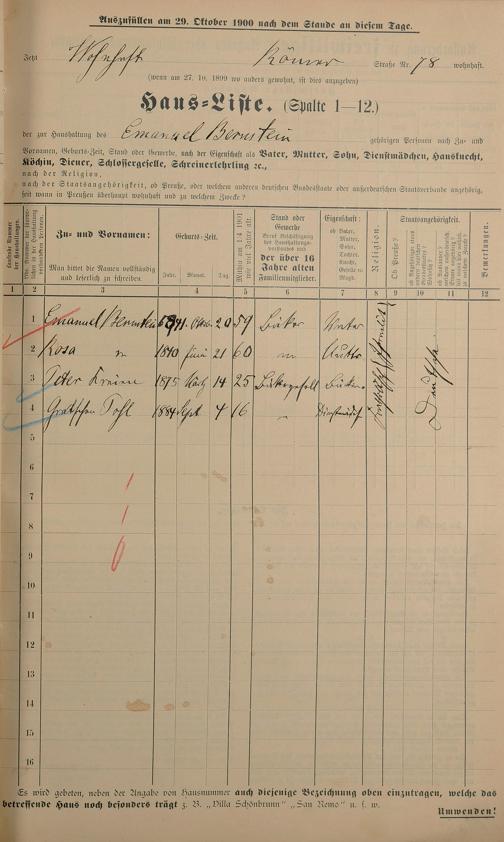 Auszufüllen am 29. Oktober 1900 nach dem Stande an diesem Tage.
Jetzt Wohnhaft Römer Straße Nr. 78 wohnhaft.
(wenn am 27. 10. 1899 wo anders gewohnt, ist dies anzugeben)
Haus-Liste. (Spalte 1—12.)
der zur Haushaltung des Emanuel Bernstein gehörigen Personen nach Zu- und
Vornamen, Geburts-Zeit, Stand oder Gewerbe, nach der Eigenschaft als Vater, Mutter, Sohn, Dienstmädchen, Hausknecht,
Köchin, Diener, Schlossergeselle, Schreinerlehrling ꝛc.,
nach der Religion,
nach der Staatsangehörigkeit, ob Preuße, oder welchem anderen deutschen Bundesstaate oder außerdeutschen Staatsverbande angehörig,
seit wann in Preußen überhaupt wohnhaft und zu welchem Zwecke?
Zu- und Vornamen:
Man bittet die Namen vollständig und leserlich zu schreiben.
Geburts-Zeit.
Jahr. Monat. Tag.
Stand oder Gewerbe
der über 16 Jahre alten Familienmitglieder.
Eigenschaft:
ob Vater, Mutter, Sohn, Tochter, Knecht, Geselle u. Magd.
Religion.
Staatsangehörigkeit.
Ob Preuße?
Bemerkungen.
1 2 3 4 5 6 7 8 9 10 11 12
1 Emanuel Bernstein 20 59 Bäker Vater
2 Rosa 1840 Juni 21 60 Mutter
3 Peter 1875 14 25 Bäkergesell
4 Gretchen 1884 Sept. 4 16 Dienstmädch
5
6
7
8
9
10
11
12
13
14
15
16
Es wird gebeten, neben der Angabe von Hausnummer auch diejenige Bezeichnung oben einzutragen, welche das
betreffende Haus noch besonders trägt z. B. „Villa Schönbrunn" „San Remo" u. s. w.
Umwenden!